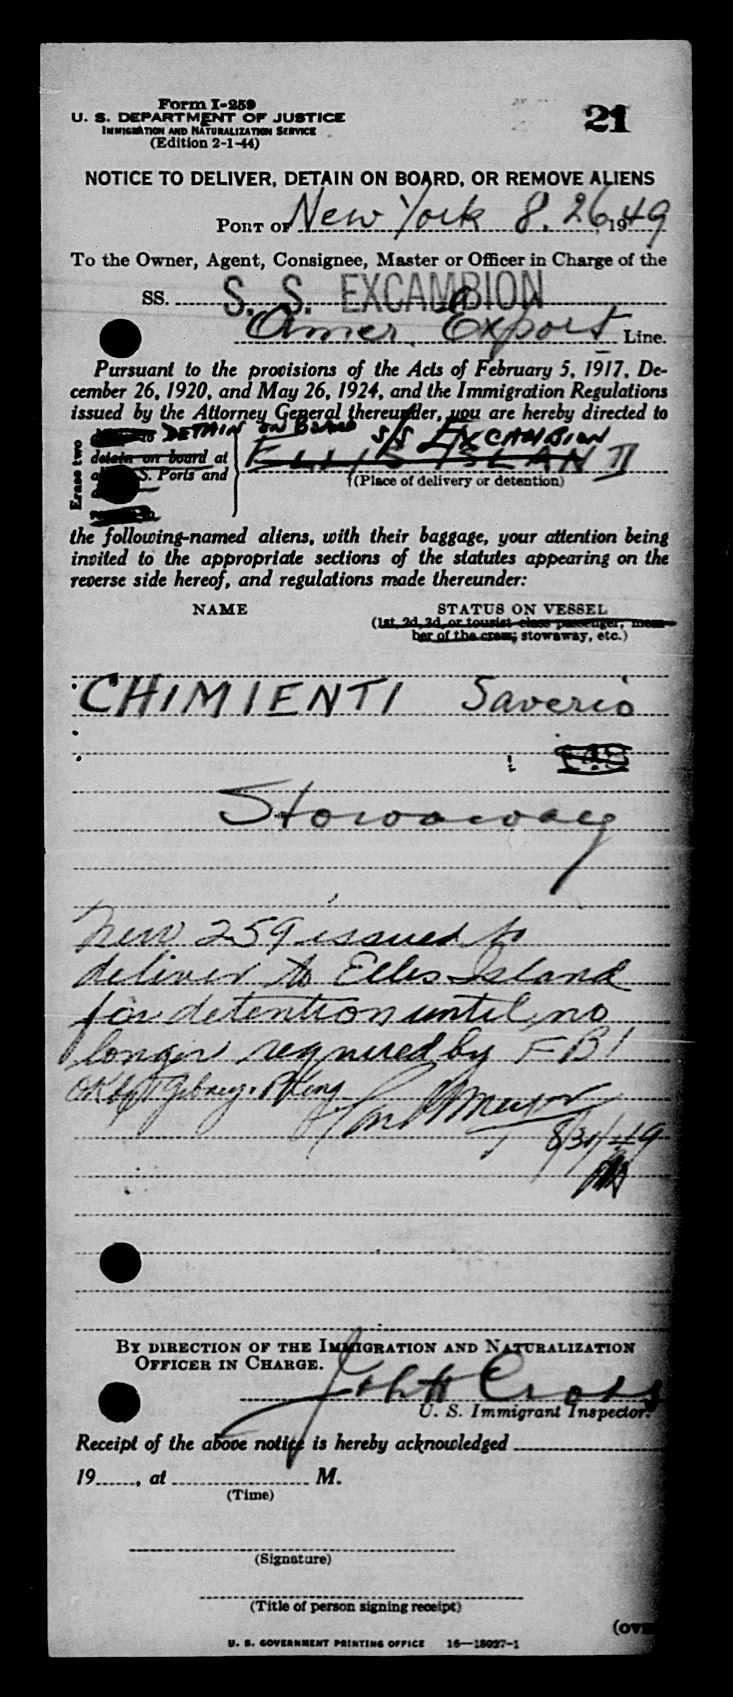 Form I-259
U. S. DEPARTMENT OF JUSTICE
IMMIGRATION AND NATURALIZATION SERVICE
(Edition 2-1-44)
21
NOTICE TO DELIVER, DETAIN ON BOARD, OR REMOVE ALIENS
PORT OF New York 8.26, 1949
To the Owner, Agent, Consignee, Master or Officer in Charge of the
SS. S. S. EXCAMBION
Amer. Export Line.
Pursuant to the provisions of the Acts of February 5, 1917, De-
cember 26, 1920, and May 26, 1924, and the Immigration Regulations
issued by the Attorney General thereunder, you are hereby directed to
DETAIN ON BOARD S/S EXCAMBION
Erase two
detain on board at
ELLIS ISLAND
U.S. Ports and
(Place of delivery or detention)
the following-named aliens, with their baggage, your attention being
invited to the appropriate sections of the statutes appearing on the
reverse side hereof, and regulations made thereunder:
NAME STATUS ON VESSEL
(1st, 2d, 3d, or tourist class passenger, mem-
ber of the crew, stowaway, etc.)
CHIMIENTI Saverio
Stowaway
New 259 issued to
deliver to Ellis Island
for detention until no
longer required by FBI
OK by
8/31/49
BY DIRECTION OF THE IMMIGRATION AND NATURALIZATION
OFFICER IN CHARGE.
John Cross
U. S. Immigrant Inspector.
Receipt of the above notice is hereby acknowledged
19......, at .................... M.
(Time)
(Signature)
(Title of person signing receipt)
(ov
U. S. GOVERNMENT PRINTING OFFICE 16—18927-1